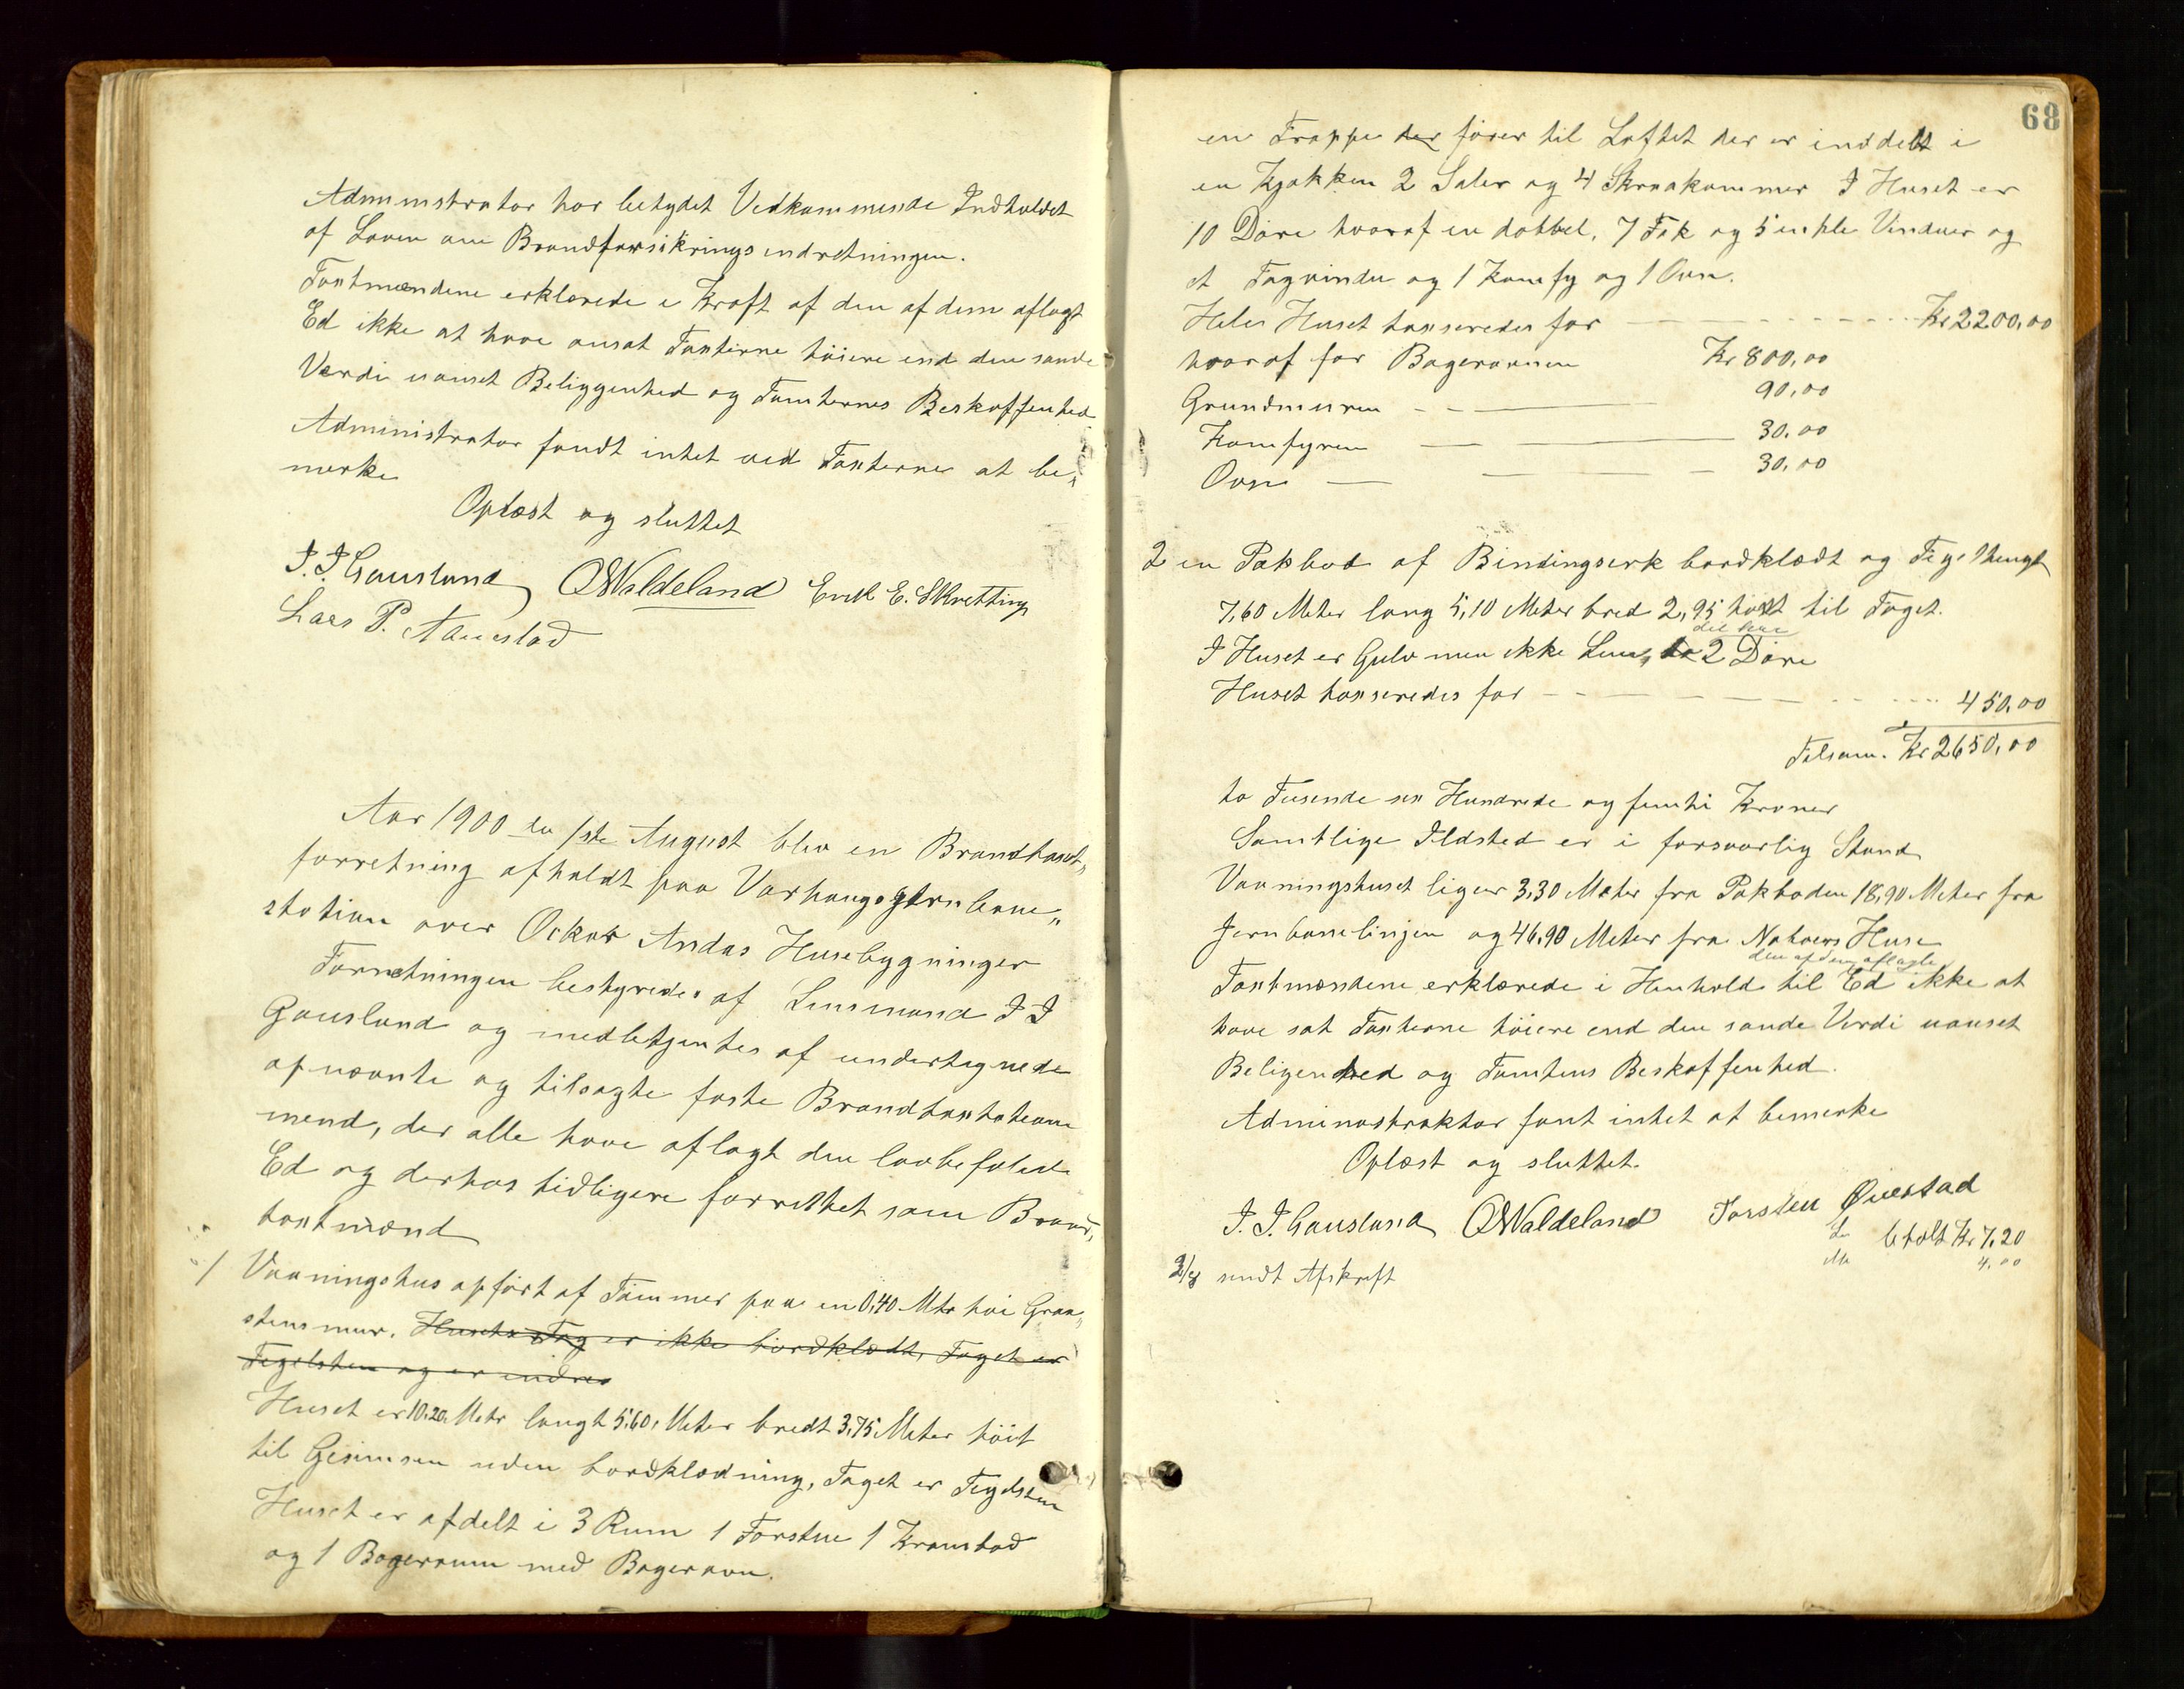 Administrator har betydet Vedkommende Indholdet
af Loven om Brandforsikringsindretningen.
Taxtmændene erklærede i Kraft af den af dem aflagt
Ed ikke at have ansat Taxterne høiere end den sande
Værdi uanset Beliggenhed og Tomternes Beskaffenhed
Administrator fandt intet ved Taxterne at be„
merke
Oplæst og sluttet
J. J. Gausland OWaldeland Erik E. Skretting
Lars P. Aanestad
Aar 1900 den 1ste August blev en Brandtaxt„
forretning afholdt paa Varhaugs Jernbane„
station over Oskar Andas Husebygninger
Forretningen bestyredes af Lensmand J J
Gausland og medbetjentes af undertegnede
opnævnte og tilsagte faste Brandtaxtations
mend, der alle have aflagt den lovbefalede
Ed og derhos tidligere forrettet som Brand„
taxtmænd
1 Vaaningshus opført af Tømmer paa en 0,40 Mtr høi Graa„
stensmur. Husets Tag er ikke bordklædt, Taget er
Tegelsten og er indre
Huset er 10,20 Metr langt 5,60, Meter bredt 3,75 Meter høit
til Gesimsen uden bordklædning, Taget er Tegelsten
Huset er afdelt i 3 Rum 1 Forstue 1 Krambod
og 1 Bagerrum med Bagerovn.
68
en Trappe der fører til Loftet der er inddelt i
en Kjøkken 2 Saler og 4 Skraakammer I Huset er
10 Døre hvoraf en dobbel, 7 Fak og 5 enkle Vinduer og
et Tagvindu og 1 Komfy og 1 Ovn.
Heles Huset taxseredes for Kr 2200,00
hvoraf for Bagerovnen Kr 800,00
Grundmuren 90,00
Komfyren 30,00
Ovn 30,00
2 en Pakbod af Bindingserk bordklædt og Tegelhengt
7,60 Meter lang 5,10 Meter bred 2,95 høit til Taget.
I Huset er Gulv men ikke Lem, 2 Døre
Huset taxseredes for 450,00
Tilsam. Kr 2650,00
to Tusende sex Hundrede og femti Kroner
Samtlige Ildsted er i forsvarlig Stand
Vaaningshuset liger 3,30 Meter fra Pakboden 18,90 Meter fra
Jernbanelinjen og 46,90 Meter fra Naboers Huse
den af dem aflagte
Taxtmændene erklærede i Henhold til Ed ikke at
have sat Taxterne høiere end den sande Verdi uanset
Beligenhed og Tomtens Beskaffenhed.
Adminostraktor fant intet at bemerke
Oplæst og sluttet.
J. J. Gausland OWaldeland Torsten Øverstad
betalt Kr 7,20
4,00
2/8 sendt Afskrift